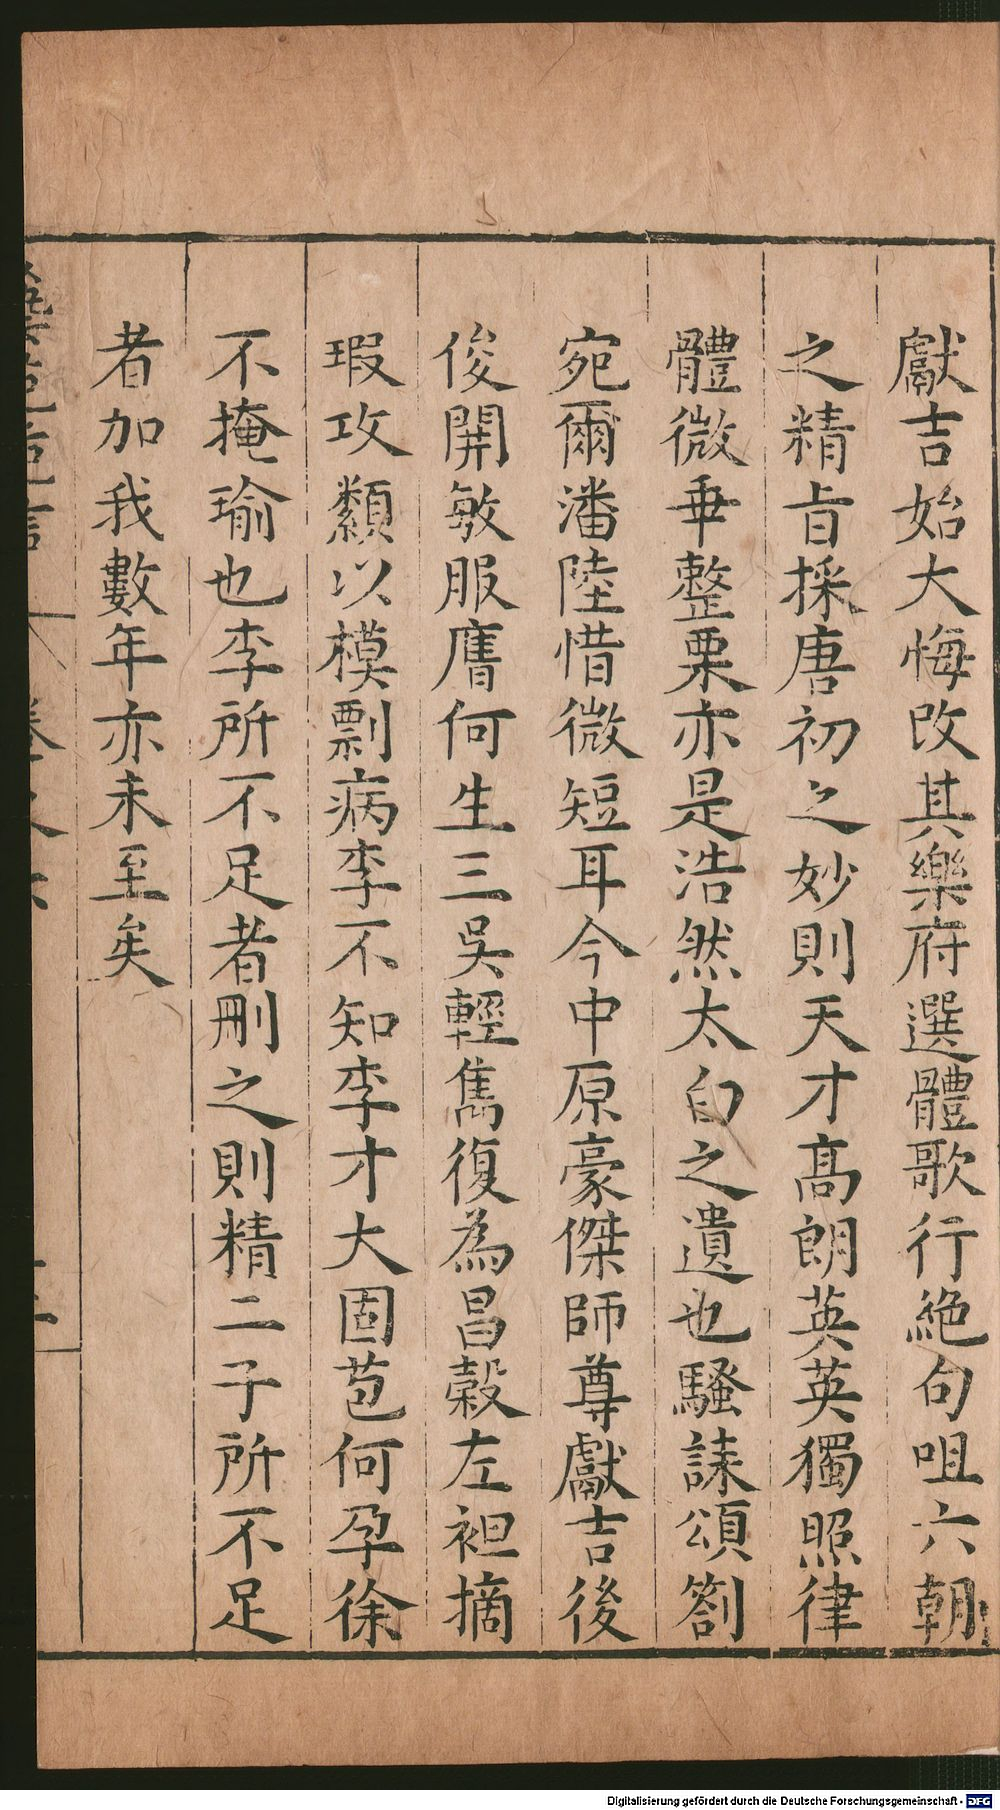 獻吉始大悔改其樂府選體歌行絶句咀六朝
之精旨採唐初之妙則天才高朗英英獨照律
體微乖整栗亦是浩然太白之遺也騷誄頌劄
宛爾潘陸惜微短耳今中原豪傑師尊獻吉後
俊開敏服膺何生三吳輕雋復為昌穀左袒摘
瑕攻纇以模剽病李不知李才大固苞何孕徐
不掩瑜也李所不足者刪之則精二子所不足
者加我數年亦未至矣
Digitalisierung gefördert durch die Deutsche Forschungsgemeinschaft - DFG